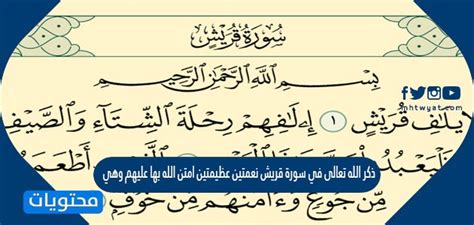 سُورَةُ قُرَيْشٍ
بِسْمِ اللَّهِ الرَّحْمَٰنِ الرَّحِيمِ
يلَٰفِ قُرَيْشٍ ١ إِۦلَٰفِهِمْ رِحْلَةَ ٱلشِّتَآءِ وَٱلصَّيْفِ
mhtwyat.com
فَلْيَعْبُد أَطْعَمَ
ذكر الله تعالى في سورة قريش نعمتين عظيمتين امتن الله بها عليهم وهي
مِّن جُوعٍ وَءَامَنَهُم مِّنْ خَوْفٍ
محتويات